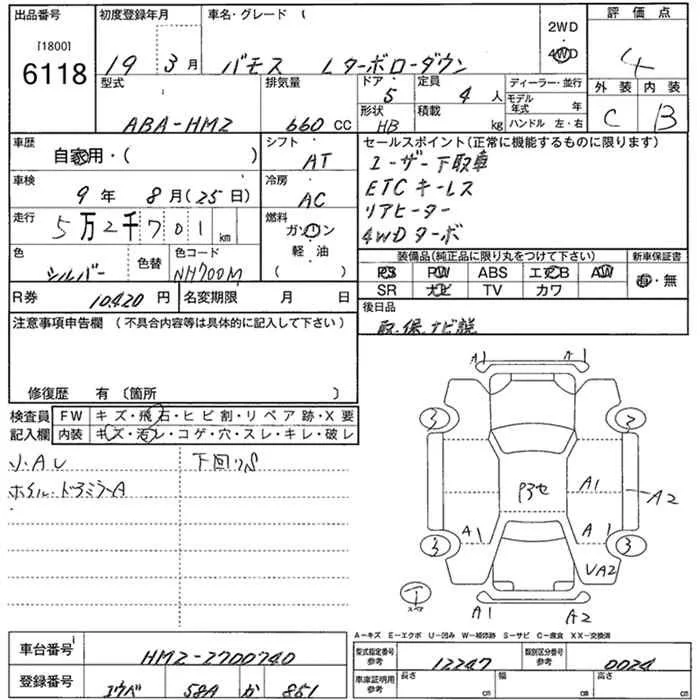 出品番号 初度登録年月 車名・グレード 評価点
[1800]
6118 19 3月 バモス Lターボローダウン 2WD 4WD 4
型式 排気量 ドア 5 定員 4人 ディーラー・並行 外装 内装
ABA-HMZ 660 CC 形状 HB 積載 kg モデル年式 年 C B
ハンドル 左・右
車歴 自家用・( ) シフト AT セールスポイント(正常に機能するものに限ります)
ユーザー下取車
車検 9年 8月(25日) 冷房 AC ETC キーレス
リアヒーター
走行 5万2千701km 燃料 ガソリン 4WDターボ
軽油
( )
色 シルバー 色替 色コード NH700M 装備品(純正品に限り丸をつけて下さい) 新車保証書
PS PW ABS エアB AW 有・無
SR ナビ TV カワ
R券 10420円 名変期限 月 日 後日品
取.保.ナビ説
注意事項申告欄(不具合内容等は具体的に記入して下さい)
修復歴 有 〔箇所 〕
検査員 FW キズ・飛石・ヒビ割・リペア跡・X要
記入欄 内装 キズ・汚レ・コゲ・穴・スレ・キレ・破レ
小.AU 下回りS
ホイル.ドアミラーA
A1 A1
3 2
A1 A2
A1 A1
3 3
UA2
A1 A2
A-キズ E-エクボ U-凹み W-補修跡 S-サビ C-腐食 XX-交換済
車台番号 HMZ-2700740 型式指定番号 参考 12247 類別区分番号 参考 0024
登録番号 コウベ 58A か 851 車庫証明用 参考 長さ cm 幅 cm 高さ cm